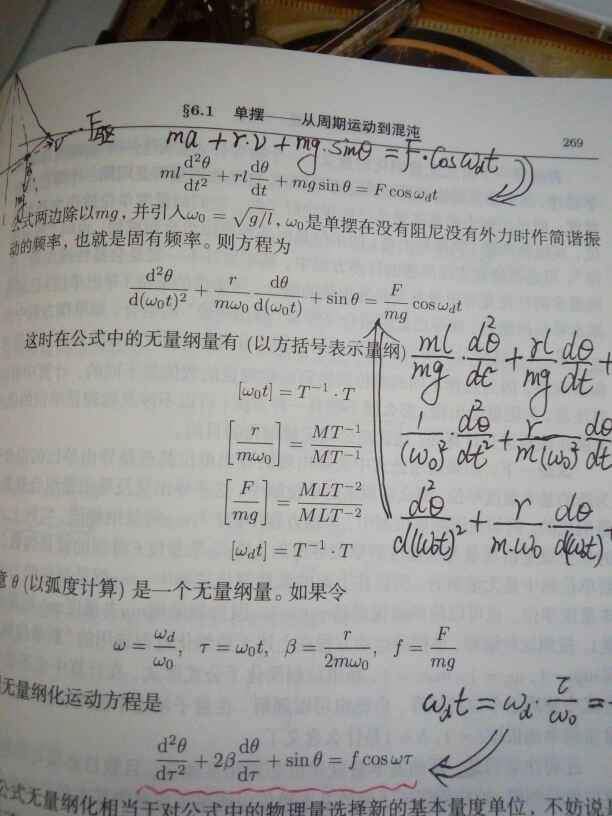 §6.1 单摆——从周期运动到混沌
269
F驱
ma + r·v + mg·sinθ = F·cosω_d t
ml d²θ/dt² + rl dθ/dt + mg sin θ = F cos ω_d t
公式两边除以mg, 并引入ω₀ = √(g/l), ω₀是单摆在没有阻尼没有外力时作简谐振
动的频率, 也就是固有频率。则方程为
d²θ/d(ω₀t)² + r/(mω₀) dθ/d(ω₀t) + sin θ = F/(mg) cos ω_d t
这时在公式中的无量纲量有 (以方括号表示量纲)
ml/mg · d²θ/dt + rl/mg dθ/dt +
[ω₀t] = T⁻¹ · T
1/(ω₀)² · d²θ/dt² + r/m(ω₀)² · dθ/dt
[r/(mω₀)] = MT⁻¹/MT⁻¹
[F/(mg)] = MLT⁻²/MLT⁻²
d²θ/d(ω₀t)² + r/m·ω₀ · dθ/d(ω₀t)
[ω_d t] = T⁻¹ · T
意 θ (以弧度计算) 是一个无量纲量。如果令
ω = ω_d/ω₀, τ = ω₀t, β = r/(2mω₀), f = F/(mg)
无量纲化运动方程是
ω_d t = ω_d · τ/ω₀ =
d²θ/dτ² + 2β dθ/dτ + sin θ = f cos ωτ
公式无量纲化相当于对公式中的物理量选择新的基本量度单位, 不妨说是